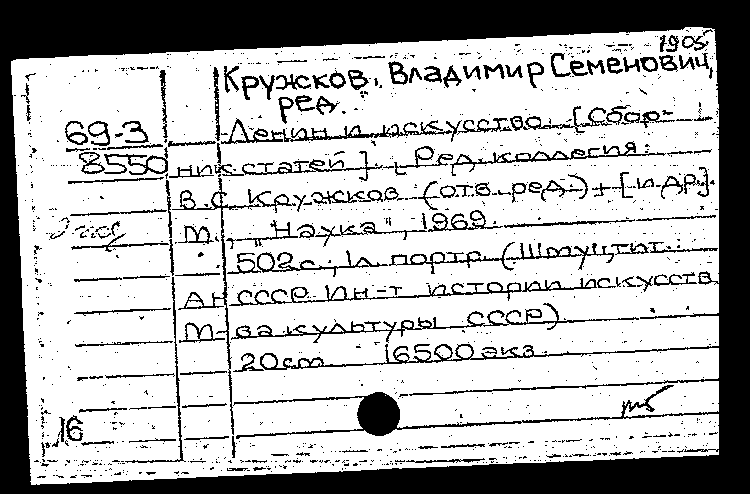 1905
Кружков, Владимир Семенович,
ред.
69-3 Ленин и искусство. [Сбор-
8550 ник статей]. [Ред. коллегия:
В.С. Кружков (отв. ред.) и [и др].
М., "Наука", 1969.
502 с.; 1 л. портр. (Шмуцтит.:
АН СССР. Ин-т истории искусств
М-ва культуры СССР).
20 cm 6500 экз.
16